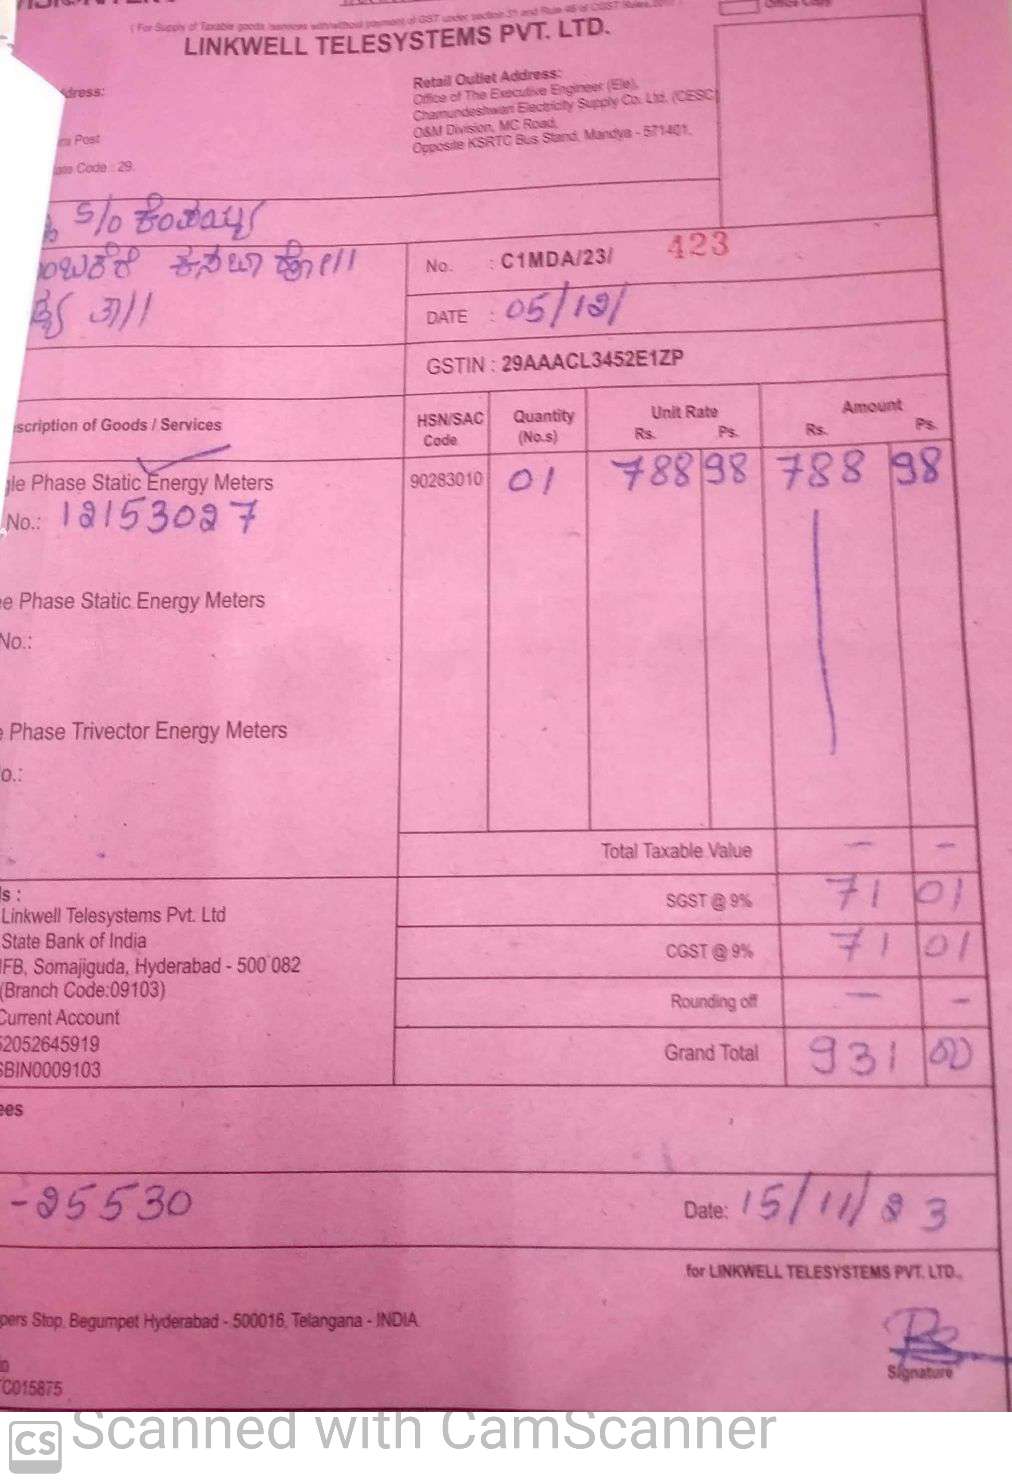 ( For Supply of Taxable goods /services with/without payment of GST under section 31 and Rule 46 of CGST Rules, 2017
LINKWELL TELESYSTEMS PVT. LTD.
Retail Outlet Address:
Office of The Executive Engineer (Ele),
Chamundeshwari Electricity Supply Co. Ltd. (CESC
O&M Division, MC Road,
Opposite KSRTC Bus Stand, Mandya - 571401.
dress:
Post
Code : 29.
S/o
No. : C1MDA/23/ 423
DATE : 05/12/
GSTIN : 29AAACL3452E1ZP
scription of Goods / Services HSN/SAC Code Quantity (No.s) Unit Rate Rs. Ps. Amount Rs. Ps.
gle Phase Static Energy Meters 90283010 01 788 98 788 98
No.: 12153027
e Phase Static Energy Meters
No.:
e Phase Trivector Energy Meters
o.:
Total Taxable Value — –
SGST @ 9% 71 01
CGST @ 9% 71 01
Rounding off — –
Grand Total 931 00
ls :
Linkwell Telesystems Pvt. Ltd
State Bank of India
IFB, Somajiguda, Hyderabad - 500 082
(Branch Code:09103)
Current Account
52052645919
SBIN0009103
ees
-25530
Date: 15/11/23
for LINKWELL TELESYSTEMS PVT. LTD.,
pers Stop, Begumpet Hyderabad - 500016, Telangana - INDIA
C015875
Signature
CS Scanned with CamScanner